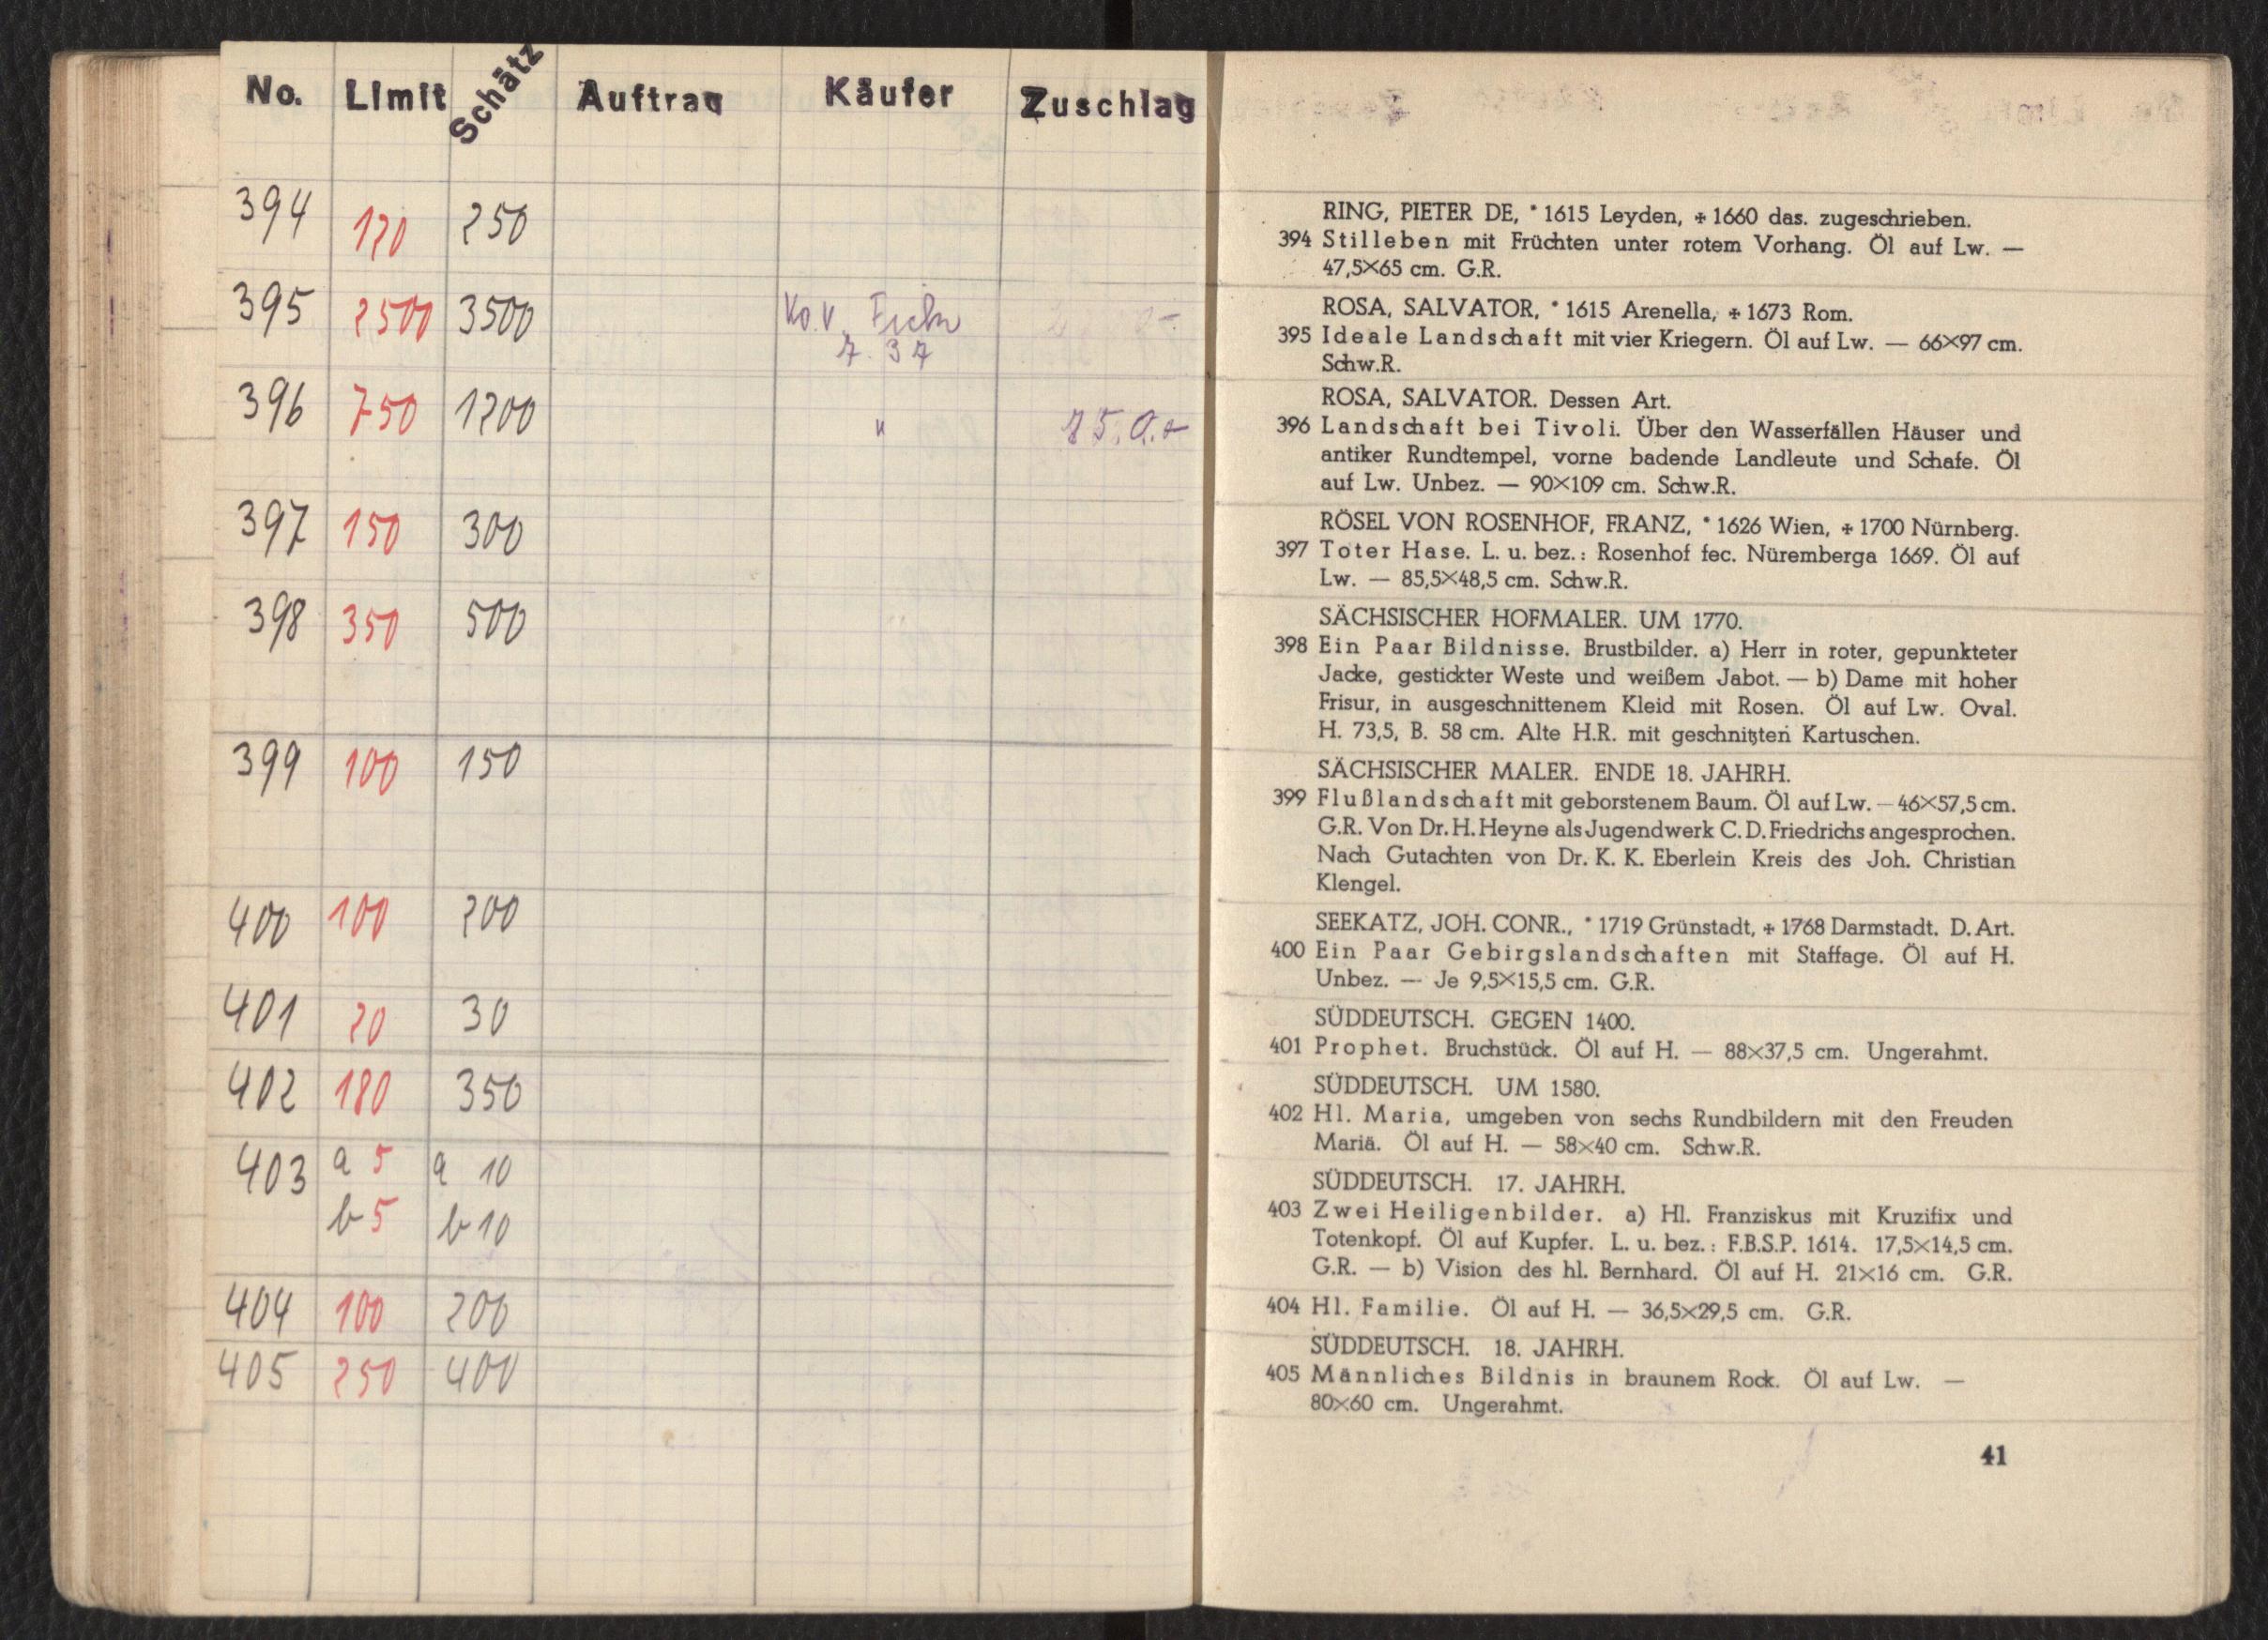 No. Limit Schätz Auftrag Käufer Zuschlag
394 120 250
395 2500 3500 Ko.V.
7.37
396 750 1200 "
397 150 300
398 350 500
399 100 150
400 100 200
401 20 30
402 180 350
403 a 5 a 10
b 5 b 10
404 100 200
405 250 400
RING, PIETER DE, * 1615 Leyden, + 1660 das. zugeschrieben.
394 Stilleben mit Früchten unter rotem Vorhang. Öl auf Lw. —
47,5×65 cm. G.R.
ROSA, SALVATOR, * 1615 Arenella, + 1673 Rom.
395 Ideale Landschaft mit vier Kriegern. Öl auf Lw. — 66×97 cm.
Schw.R.
ROSA, SALVATOR. Dessen Art.
396 Landschaft bei Tivoli. Über den Wasserfällen Häuser und
antiker Rundtempel, vorne badende Landleute und Schafe. Öl
auf Lw. Unbez. — 90×109 cm. Schw.R.
RÖSEL VON ROSENHOF, FRANZ, * 1626 Wien, + 1700 Nürnberg.
397 Toter Hase. L. u. bez.: Rosenhof fec. Nüremberga 1669. Öl auf
Lw. — 85,5×48,5 cm. Schw.R.
SÄCHSISCHER HOFMALER. UM 1770.
398 Ein Paar Bildnisse. Brustbilder. a) Herr in roter, gepunkteter
Jacke, gestickter Weste und weißem Jabot. — b) Dame mit hoher
Frisur, in ausgeschnittenem Kleid mit Rosen. Öl auf Lw. Oval.
H. 73,5, B. 58 cm. Alte H.R. mit geschnitzten Kartuschen.
SÄCHSISCHER MALER. ENDE 18. JAHRH.
399 Flußlandschaft mit geborstenem Baum. Öl auf Lw. — 46×57,5 cm.
G.R. Von Dr. H. Heyne als Jugendwerk C. D. Friedrichs angesprochen.
Nach Gutachten von Dr. K. K. Eberlein Kreis des Joh. Christian
Klengel.
SEEKATZ, JOH. CONR., * 1719 Grünstadt, + 1768 Darmstadt. D. Art.
400 Ein Paar Gebirgslandschaften mit Staffage. Öl auf H.
Unbez. — Je 9,5×15,5 cm. G.R.
SÜDDEUTSCH. GEGEN 1400.
401 Prophet. Bruchstück. Öl auf H. — 88×37,5 cm. Ungerahmt.
SÜDDEUTSCH. UM 1580.
402 Hl. Maria, umgeben von sechs Rundbildern mit den Freuden
Mariä. Öl auf H. — 58×40 cm. Schw.R.
SÜDDEUTSCH. 17. JAHRH.
403 Zwei Heiligenbilder. a) Hl. Franziskus mit Kruzifix und
Totenkopf. Öl auf Kupfer. L. u. bez.: F.B.S.P. 1614. 17,5×14,5 cm.
G.R. — b) Vision des hl. Bernhard. Öl auf H. 21×16 cm. G.R.
404 Hl. Familie. Öl auf H. — 36,5×29,5 cm. G.R.
SÜDDEUTSCH. 18. JAHRH.
405 Männliches Bildnis in braunem Rock. Öl auf Lw. —
80×60 cm. Ungerahmt.
41